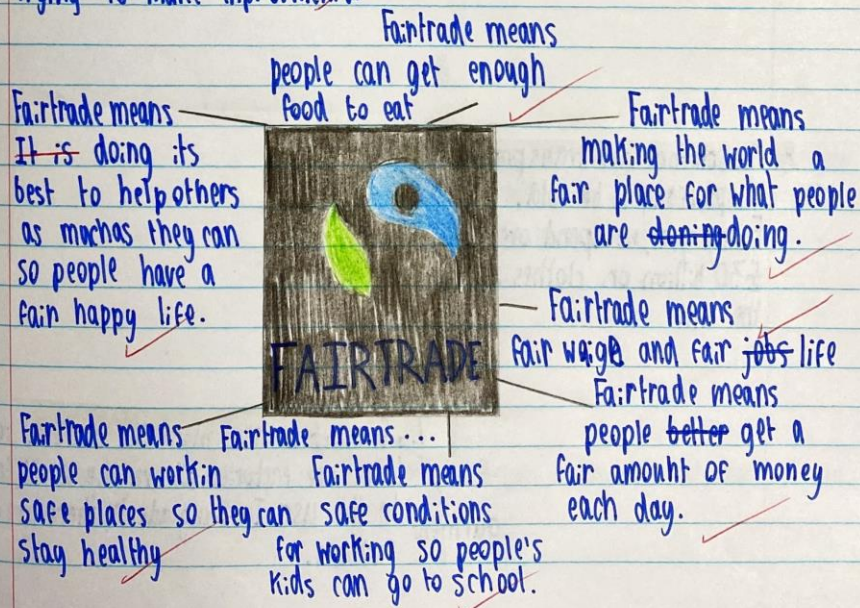 Fairtrade means
people can get enough
food to eat
Fairtrade means
It is doing its
best to help others
as muchas they can
so people have a
fair happy life.
Fairtrade means
making the world a
fair place for what people
are doning doing.
Fairtrade means
fair waige and fair jobs life
Fairtrade means
people better get a
fair amount of money
each day.
FAIRTRADE
Fairtrade means
people can workin
safe places so they can
stay healthy
Fairtrade means...
Fairtrade means
safe conditions
for working so people's
kids can go to school.